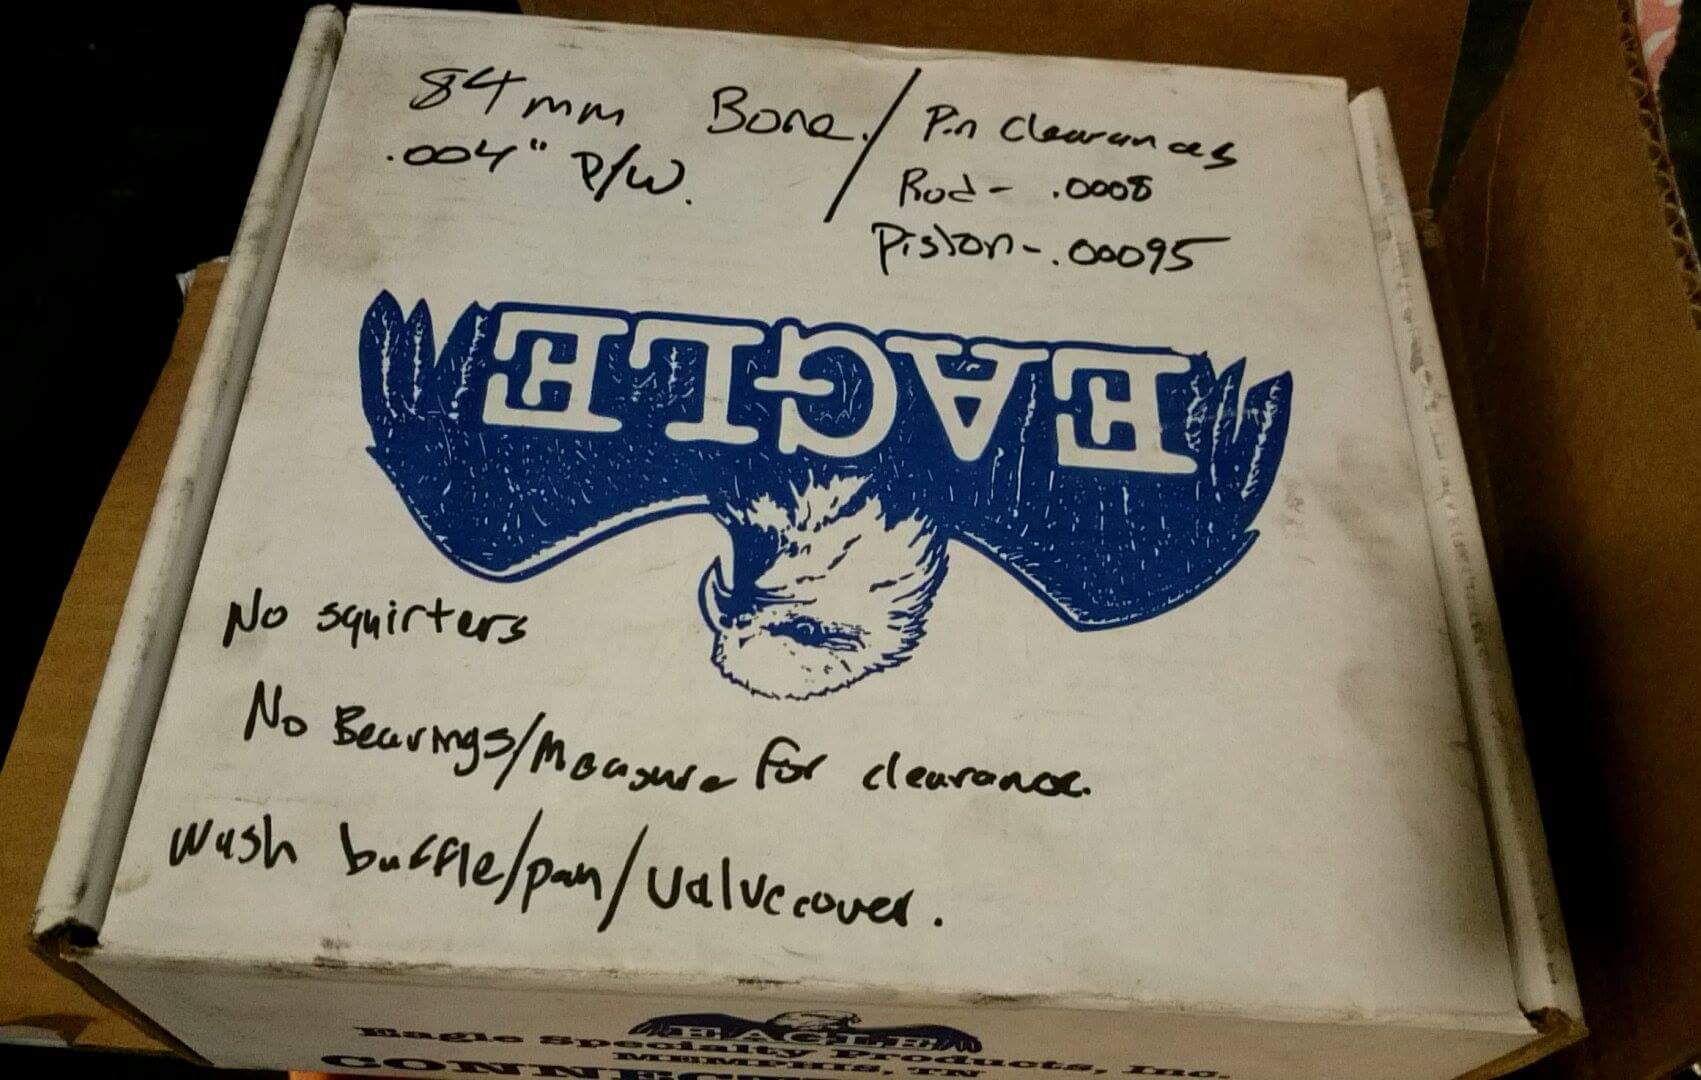 84mm Bore. / Pin Clearances
.004" P/W.
Rod - .0008
Piston - .00095
EAGLE
No squirters
No Bearings/Measure for clearance.
Wash baffle/pan/valvecover.
EAGLE
Eagle Specialty Products, Inc.
MEMPHIS, TN